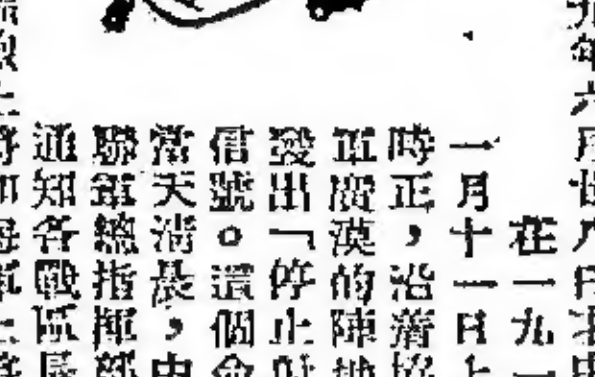 年六月廿八日
在一九一
一月十一日上
時正，沿着協
軍廣漠的陣地
發出「停止射
信號。這個命
當天清晨，中
聯軍總指揮部
通知各戰區長